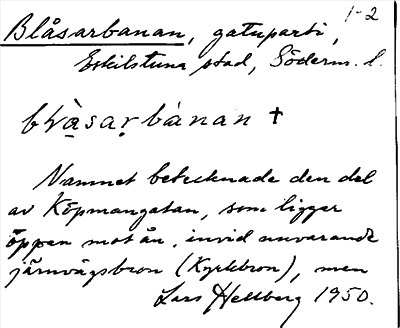 1-2
Blåsarbanan, gatuparti,
Eskilstuna stad, Söderm. l.
blɑ̀saṛbánan †
Namnet betecknade den del
av Köpmangatan, som ligger
öppen mot ån, invid nuvarande
järnvägsbron (Kyrkbron), men
Lars Hellberg 1950.